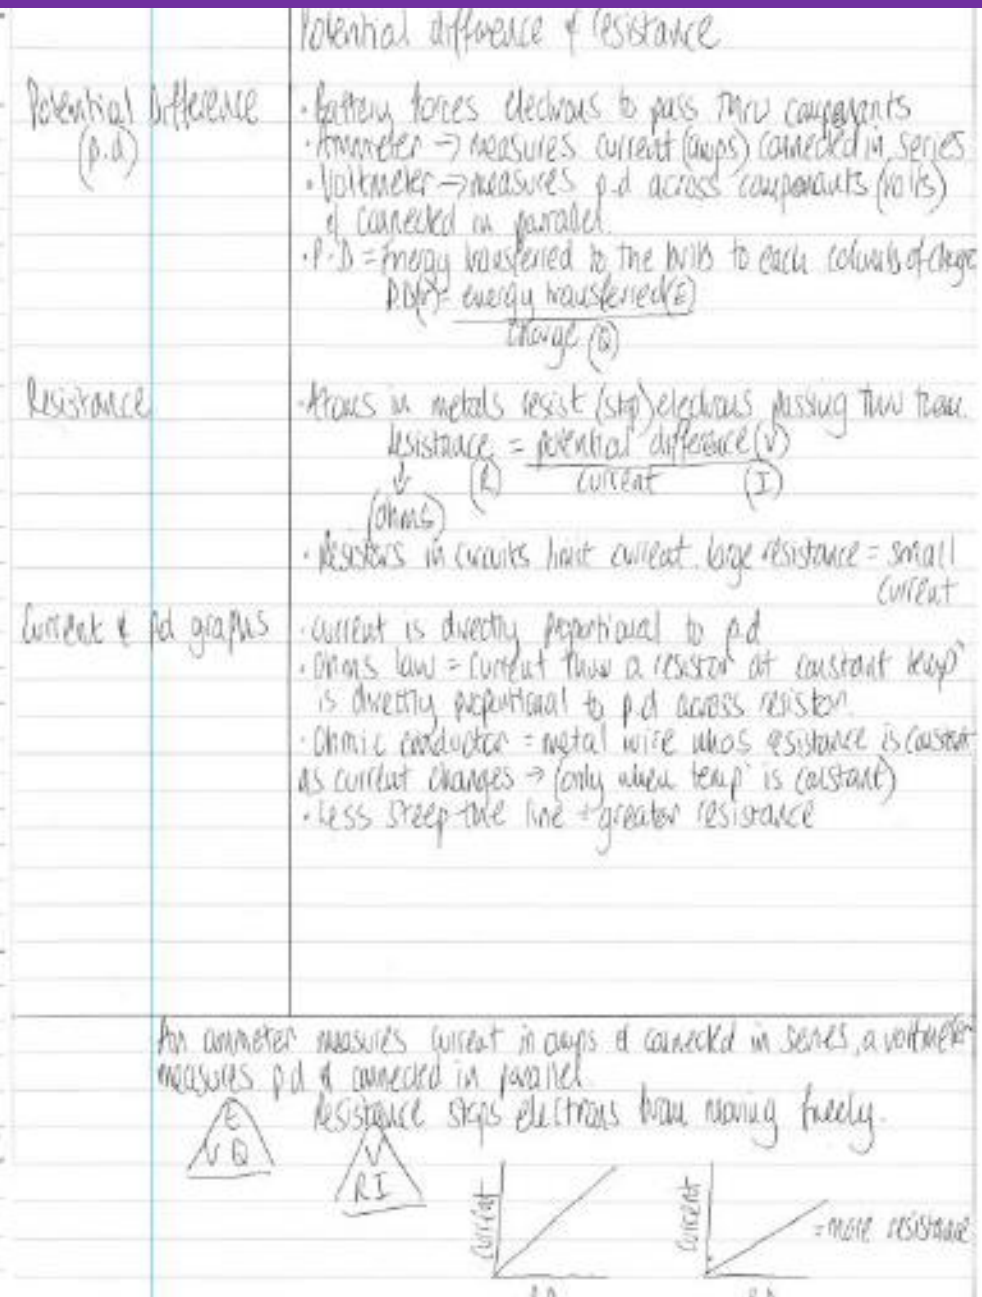 Potential difference & resistance
Potential Difference
(p.d)
· Battery forces electrons to pass thru components
· Ammeter → measures current (amps) connected in series
· Voltmeter → measures p.d across components (volts)
& connected in parallel.
· P.D = Energy transferred to the bulb to each of charge
P.D(V) = energy transferred (E)
Charge (Q)
Resistance
· Atoms in metals resist (stop) electrons passing thru them.
resistance = potential difference (V)
(R) current (I)
↓
(ohms)
· Resistors in circuits limit current. large resistance = small
current
Current & pd graphs
· current is directly proportional to p.d
· Ohms law = current thru a resistor at constant temp
is directly proportional to p.d across resistor.
· Ohmic conductor = metal wire whos resistance is constant
as current changes → (only when temp is constant)
· Less steep the line = greater resistance
An ammeter measures current in amps & connected in series, a voltmeter
measures p.d & connected in parallel.
Resistance stops electrons from moving freely.
E
V Q
V
R I
Current
Current
= more resistance